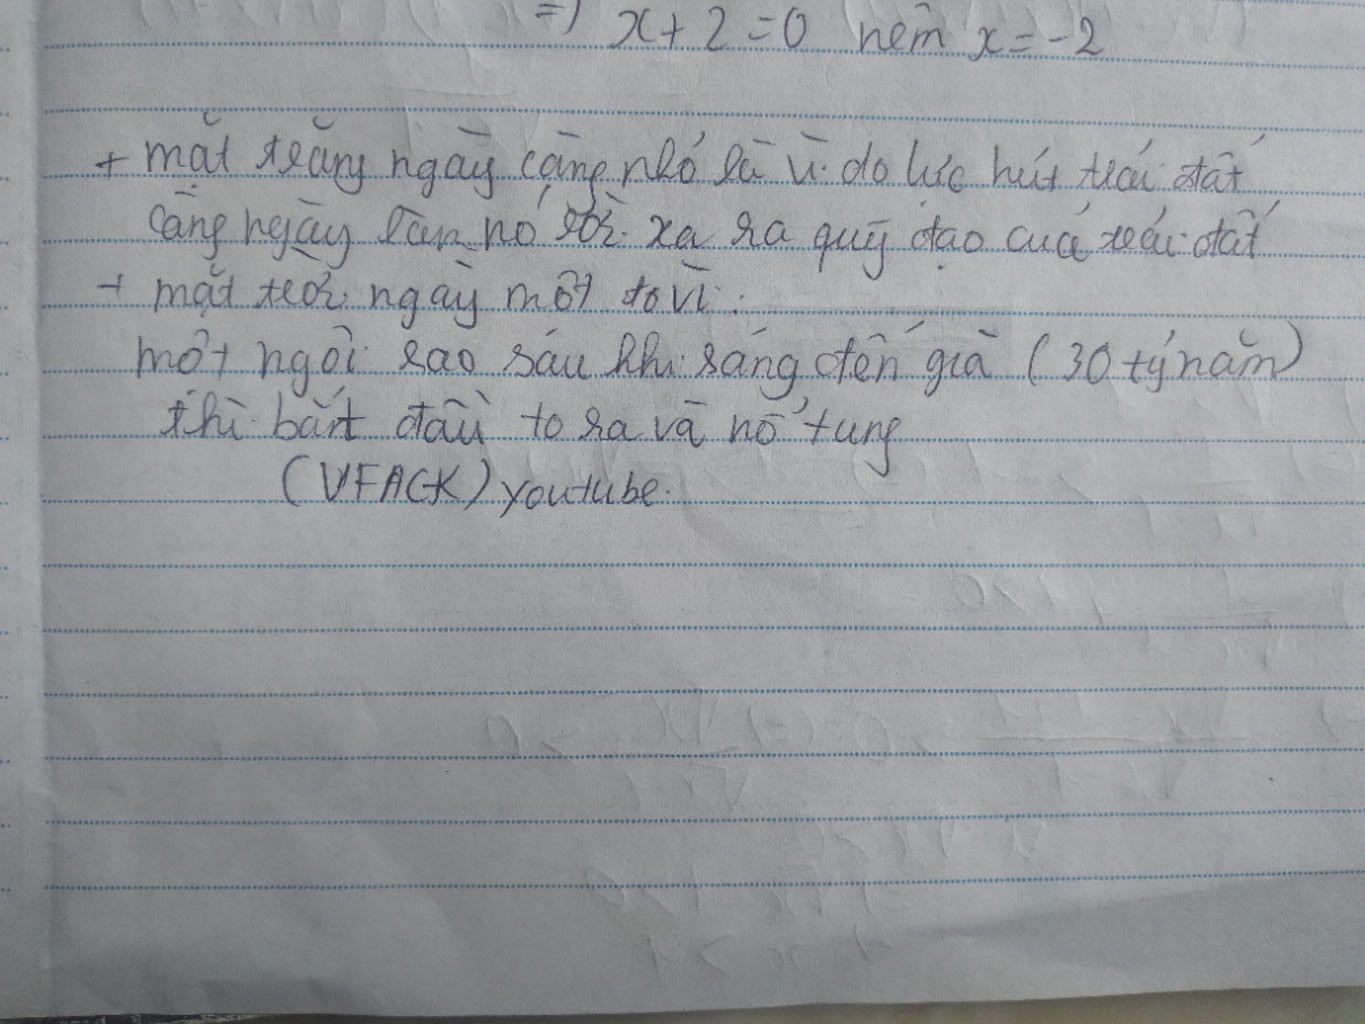 =) x + 2 = 0 nên x = -2
+ mặt trăng ngày càng nhỏ là vì do lực hút trái đất
càng ngày làm nó rời xa ra quỹ đạo cuả trái đất
+ mặt trời ngày một to vì:
một ngôi sao sáu khi sáng đến già (30 tỷ năm)
thì bắt đầu to ra và nổ tung
(VFACK) youtube.